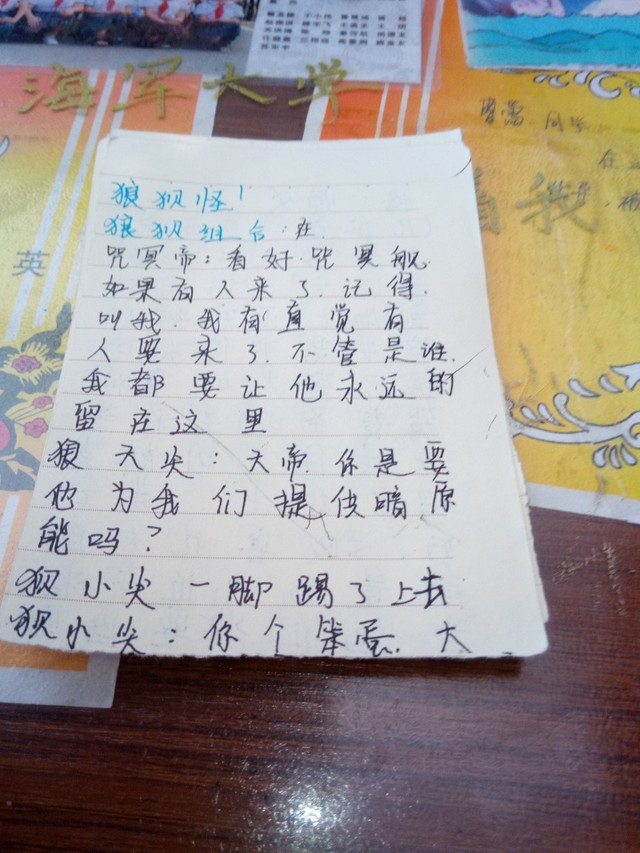 海军大学
英
同学
在
我
狼狈怪!
狼狈组合:在
咒冥帝:看好.咒冥舰.
如果有人来了.记得.
叫我.我有直觉有
人要来了.不管是谁.
我都要让他永远的
留在这里
狼天尖:天帝.你是要
他为我们提供暗原
能吗?
狈小尖一脚踢了上去
狈小尖:你个笨蛋.大